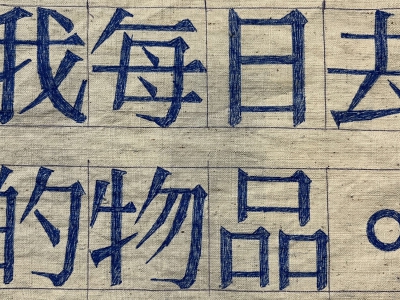 我每日去
的物品。